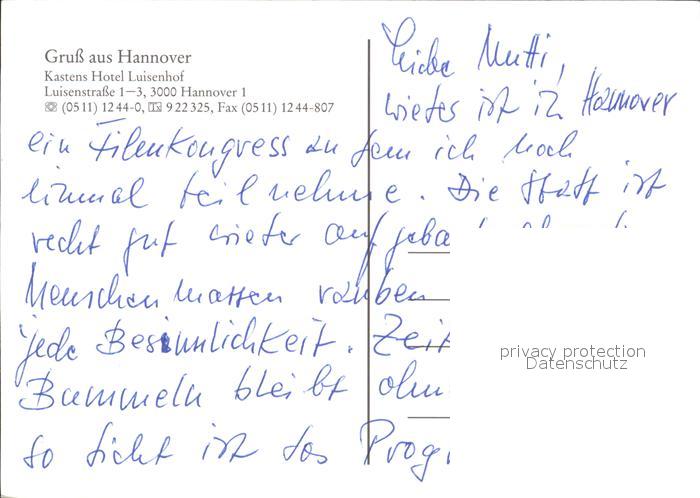 Gruß aus Hannover
Kastens Hotel Luisenhof
Luisenstraße 1–3, 3000 Hannover 1
☎ (05 11) 12 44-0, 9 22 325, Fax (05 11) 12 44-807
Liebe Mutti,
wieder ist in Hannover
ein Filmkongress an dem ich noch
einmal teilnehme. Die Stadt ist
recht gut wieder aufgeba
Menschenmassen rauben
jede Besinnlichkeit. Zeit
Bummeln bleibt ohn
so dicht ist das Progr
privacy protection
Datenschutz